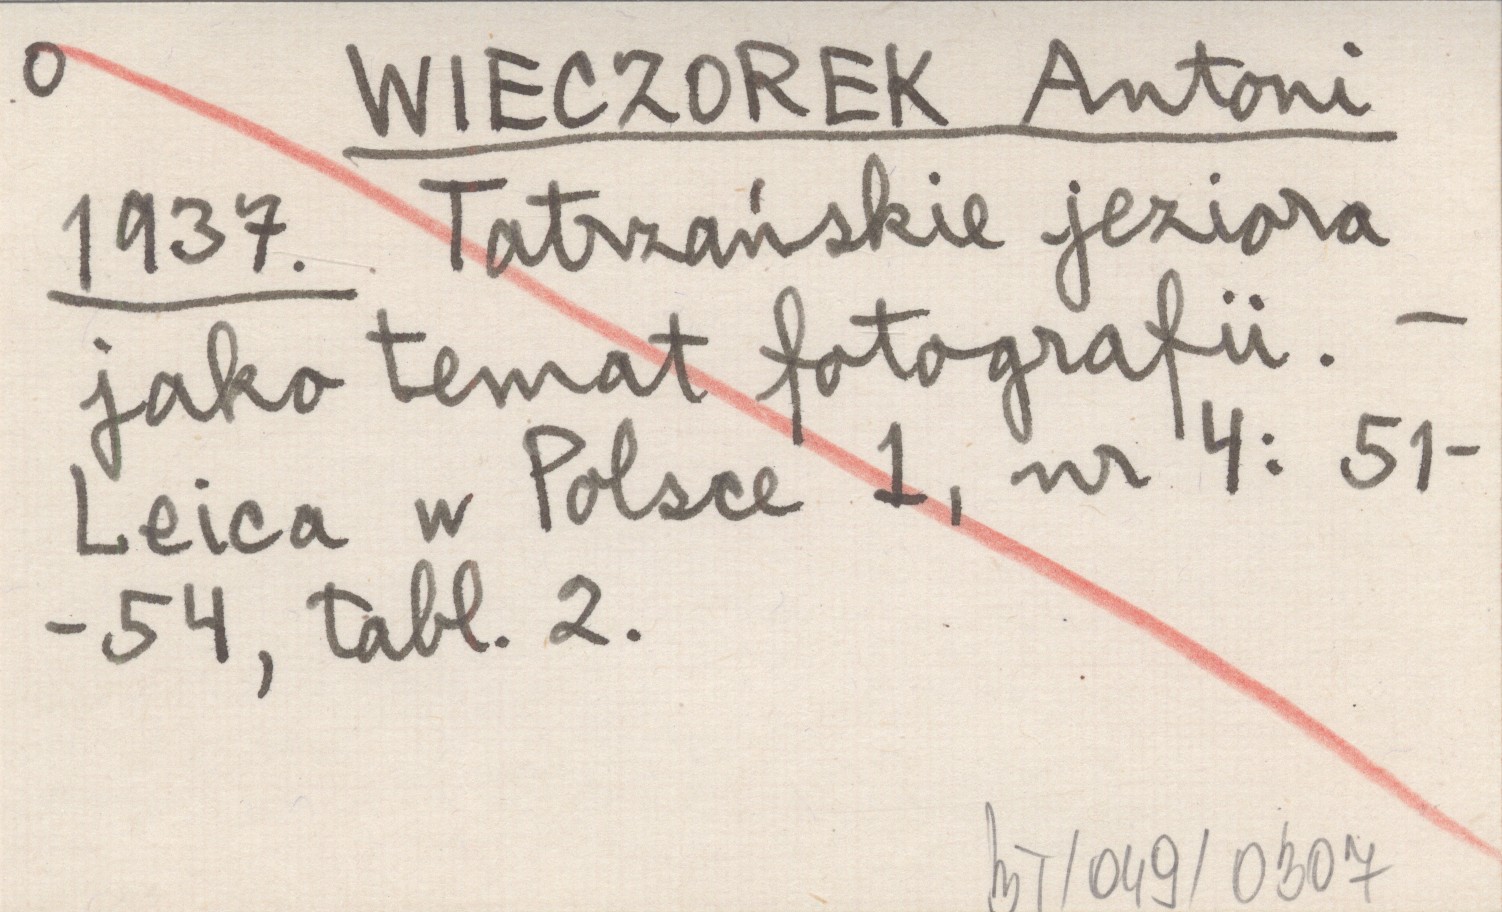 o WIECZOREK Antoni
1937. Tatrzańskie jeziora
jako temat fotografii. –
Leica w Polsce 1, nr 4: 51-
-54, tabl. 2.
BT/049/0307